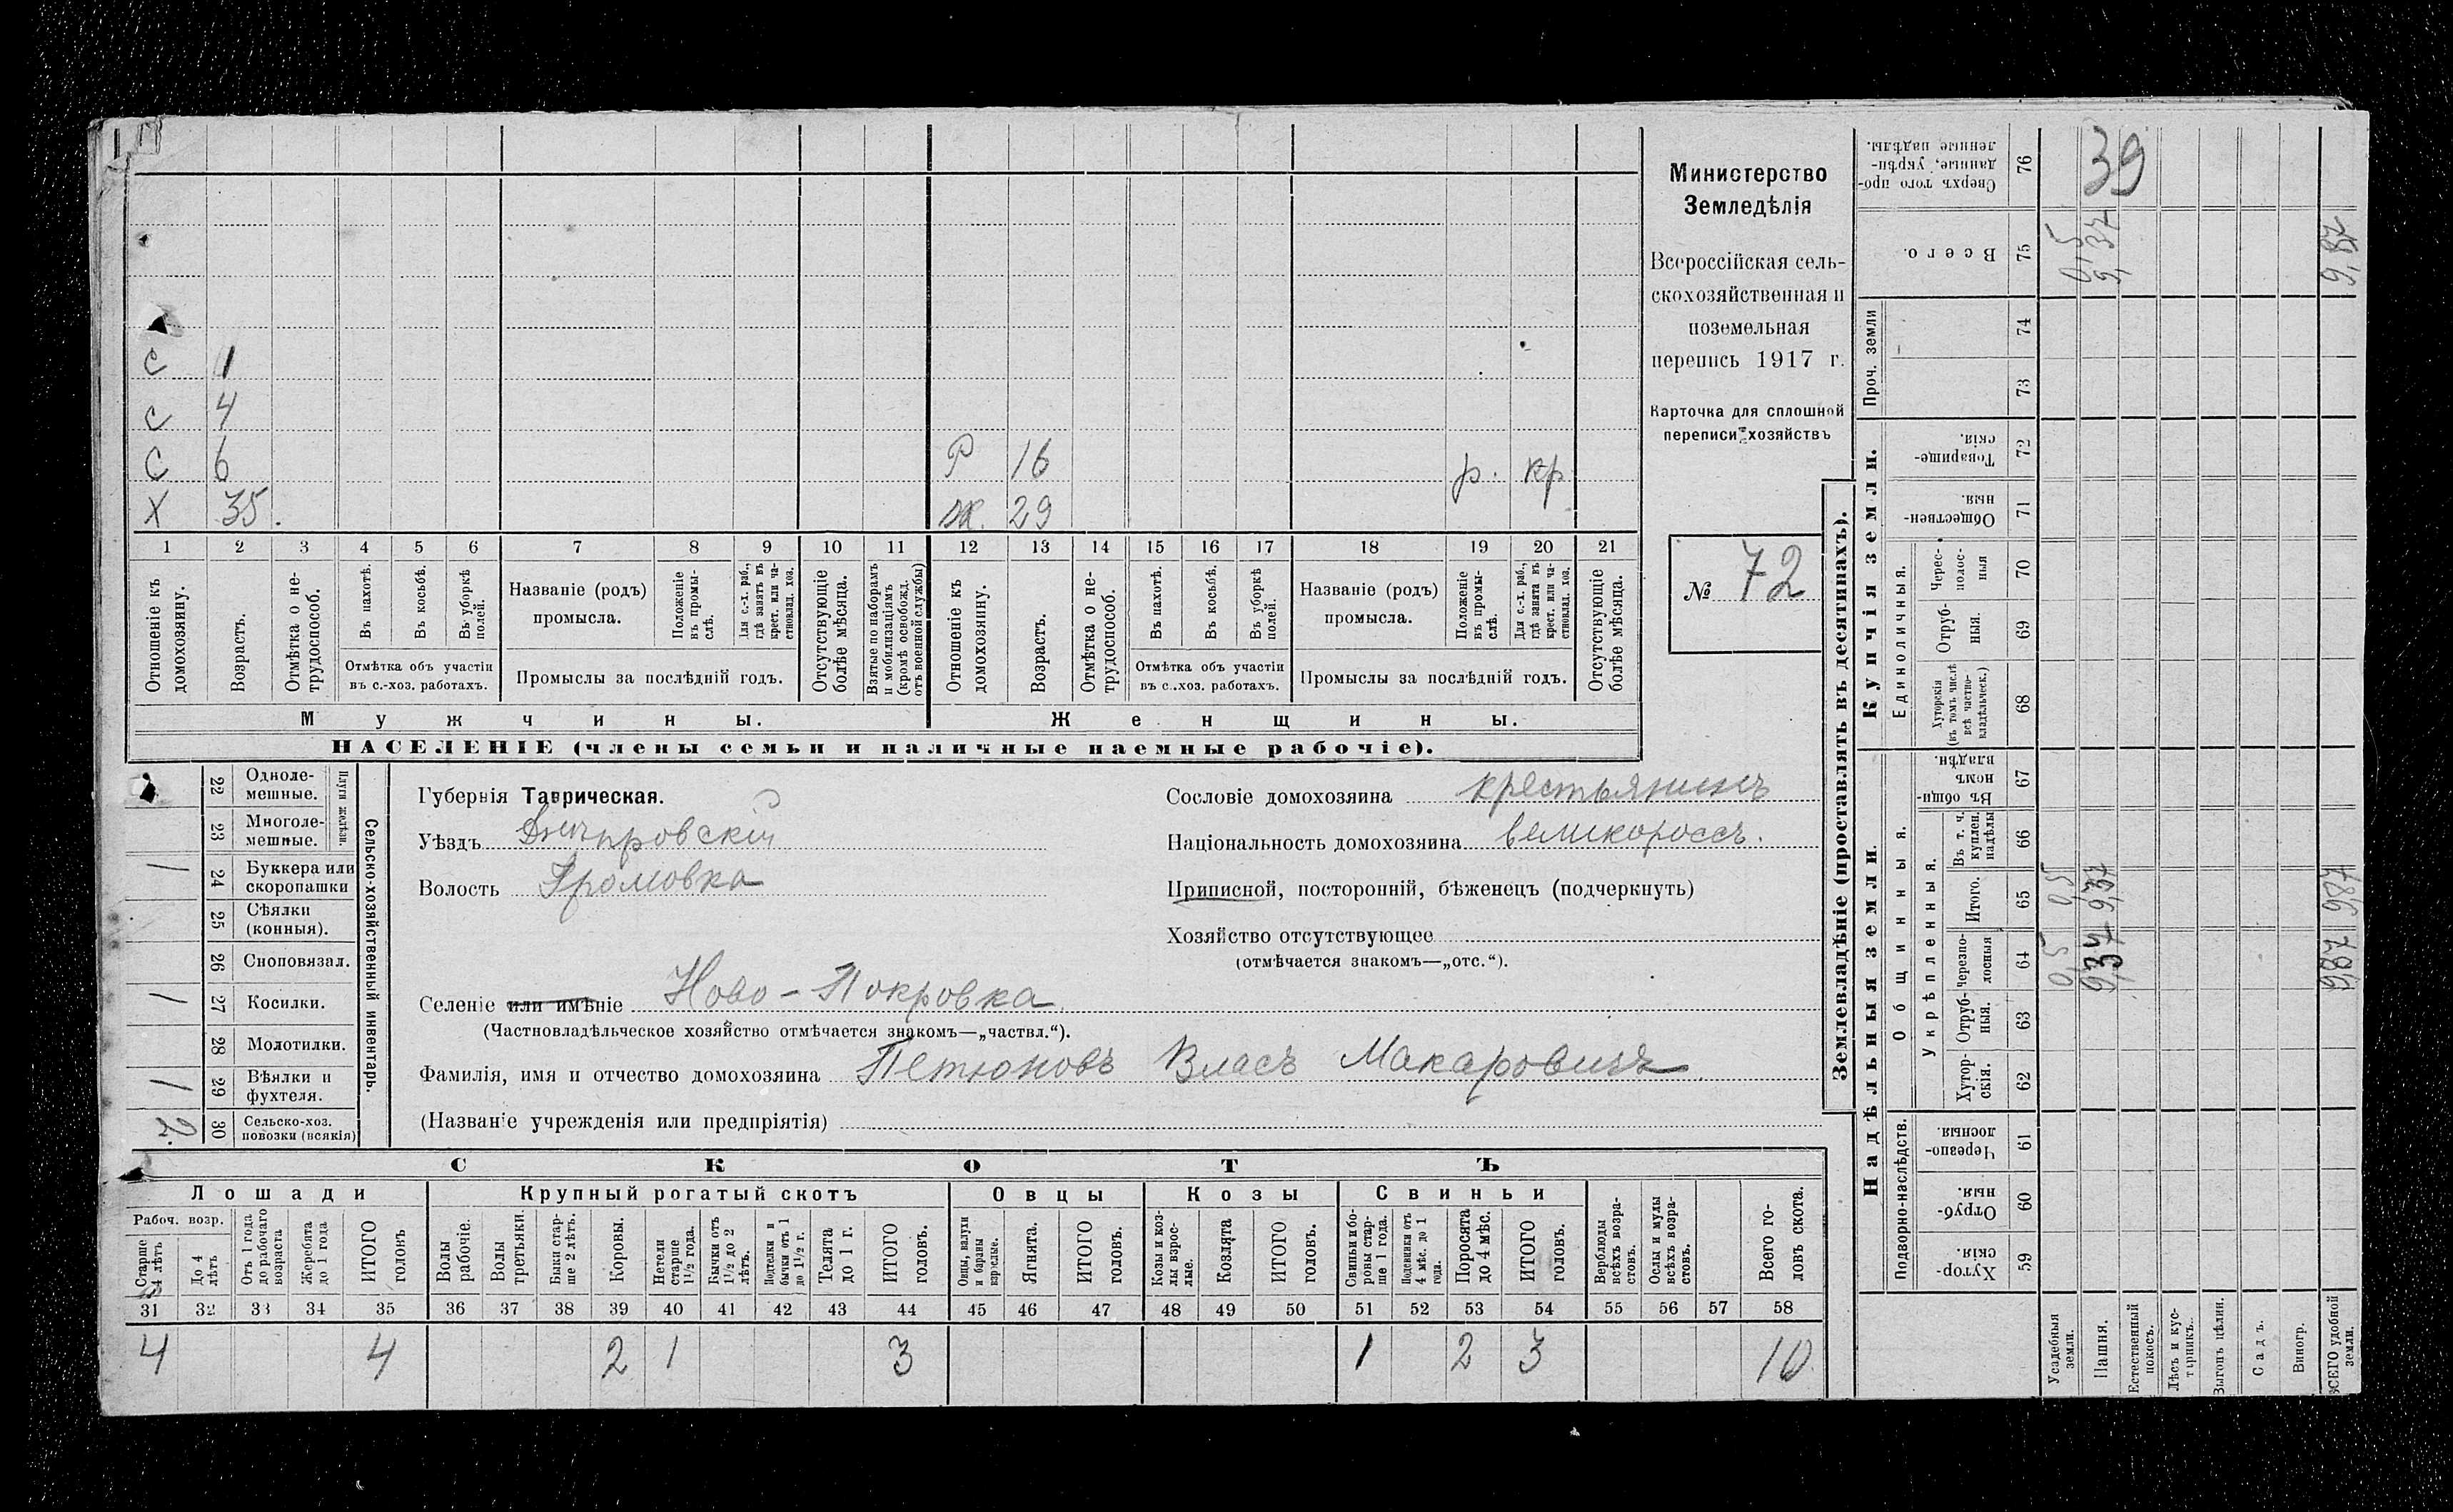 Министерство
Земледѣлія
Всероссійская сель-
скохозяйственная и
поземельная
перепись 1917 г.
Карточка для сплошной
переписи хозяйствъ
№ 72
С 1
С 4
С 6 Р 16 р. кр
Х 35. ж. 29
1 2 3 4 5 6 7 8 9 10 11 12 13 14 15 16 17 18 19 20 21
Отношеніе къ домохозяину.
Возрастъ.
Отмѣтка о не-трудоспособ.
Въ пахотѣ.
Въ косьбѣ.
Въ уборкѣ полей.
Отмѣтка объ участіи
въ с.-хоз. работахъ.
Названіе (родъ)
промысла.
Положеніе въ промы-слѣ.
Для с.-х. раб., гдѣ занятъ въ крест. или ча-стновлад. хоз.
Промыслы за послѣдній годъ.
Отсутствующіе болѣе мѣсяца.
Взятые по наборамъ и мобилизаціямъ (кромѣ освобожд. отъ военной службы)
Отношеніе къ домохозяину.
Возрастъ.
Отмѣтка о не-трудоспособ.
Въ пахотѣ.
Въ косьбѣ.
Въ уборкѣ полей.
Отмѣтка объ участіи
въ с.-хоз. работахъ.
Названіе (родъ)
промысла.
Положеніе въ промы-слѣ.
Для с.-х. раб., гдѣ занята въ крест. или ча-стновлад. хоз.
Промыслы за послѣдній годъ.
Отсутствующіе болѣе мѣсяца.
Мужчины. Женщины.
НАСЕЛЕНІЕ (члены семьи и наличные наемные рабочіе).
Сельско-хозяйственный инвентарь.
Плуги желѣзн.
22 Одноле-мешные.
23 Многоле-мешные.
1 24 Буккера или скоропашки
25 Сѣялки (конныя).
26 Сноповязал.
1 27 Косилки.
28 Молотилки.
1 29 Вѣялки и фухтеля.
2. 30 Сельско-хоз. повозки (всякія)
Губернія Таврическая.
Уѣздъ Днѣпровскій
Волость Громовка
Селеніе или имѣніе Ново-Покровка.
(Частновладѣльческое хозяйство отмѣчается знакомъ—„частвл.“).
Фамилія, имя и отчество домохозяина Петюновъ Власъ Макаровичъ.
(Названіе учрежденія или предпріятія)
Сословіе домохозяина крестьянинъ
Національность домохозяина великороссъ.
Приписной, посторонній, бѣженецъ (подчеркнуть)
Хозяйство отсутствующее
(отмѣчается знакомъ—„отс.“).
СКОТЪ
Лошади Крупный рогатый скотъ Овцы Козы Свиньи
Рабоч. возр.
Старше 4 лѣтъ
До 4 лѣтъ
Отъ 1 года до рабочаго возраста
Жеребята до 1 года
ИТОГО головъ
Волы рабочіе.
Волы третьяки.
Быки стар-ше 2 лѣтъ.
Коровы.
Нетели старше 1½ года.
Бычки отъ 1½ до 2 лѣтъ.
Подтелки и бычки отъ 1 до 1½ г.
Телята до 1 г.
ИТОГО головъ.
Овцы, валухи и бараны взрослые.
Ягнята.
ИТОГО головъ.
Козы и коз-лы взрос-лые.
Козлята
ИТОГО головъ.
Свиньи и бо-ровы стар-ше 1 года.
Подсвинки отъ 4 мѣс. до 1 года.
Поросята до 4 мѣс.
ИТОГО головъ.
Верблюды всѣхъ возра-стовъ.
Ослы и мулы всѣхъ возра-стовъ.
Всего го-ловъ скота.
31 32 33 34 35 36 37 38 39 40 41 42 43 44 45 46 47 48 49 50 51 52 53 54 55 56 57 58
4 4 2 1 3 1 2 3 10
Землевладѣніе (проставлять въ десятинахъ).
Надѣльныя земли Купчія земли. Проч. земли
Подворно-наслѣдств. Общинныя. Единоличныя.
Укрѣпленныя.
Сверхъ того про-данные, укрѣп-ленные надѣлы. 76 39
Всего. 75 0,5 9,37 9,87
74
73
Товарище-скія. 72
Обществен-ныя. 71
Черес-полос-ныя 70
Отруб-ныя. 69
Хуторскія (въ томъ числѣ всѣ частно-владѣльческ.) 68
Въ общи-номъ владѣн. 67
Въ т. ч. куплен. надѣлы 66
Итого. 65 0,5 9,37 9,87
Черезпо-лосныя 64 0,5 9,37 9,87
Отруб-ныя. 63
Хутор-скія. 62
Черезпо-лосныя. 61
Отруб-ныя. 60
Хутор-скія. 59
Усадебныя земли.
Пашня.
Естественный покосъ.
Лѣсъ и кус-тарникъ.
Выгонъ цѣлин.
Садъ.
Виногр.
ВСЕГО удобной земли.